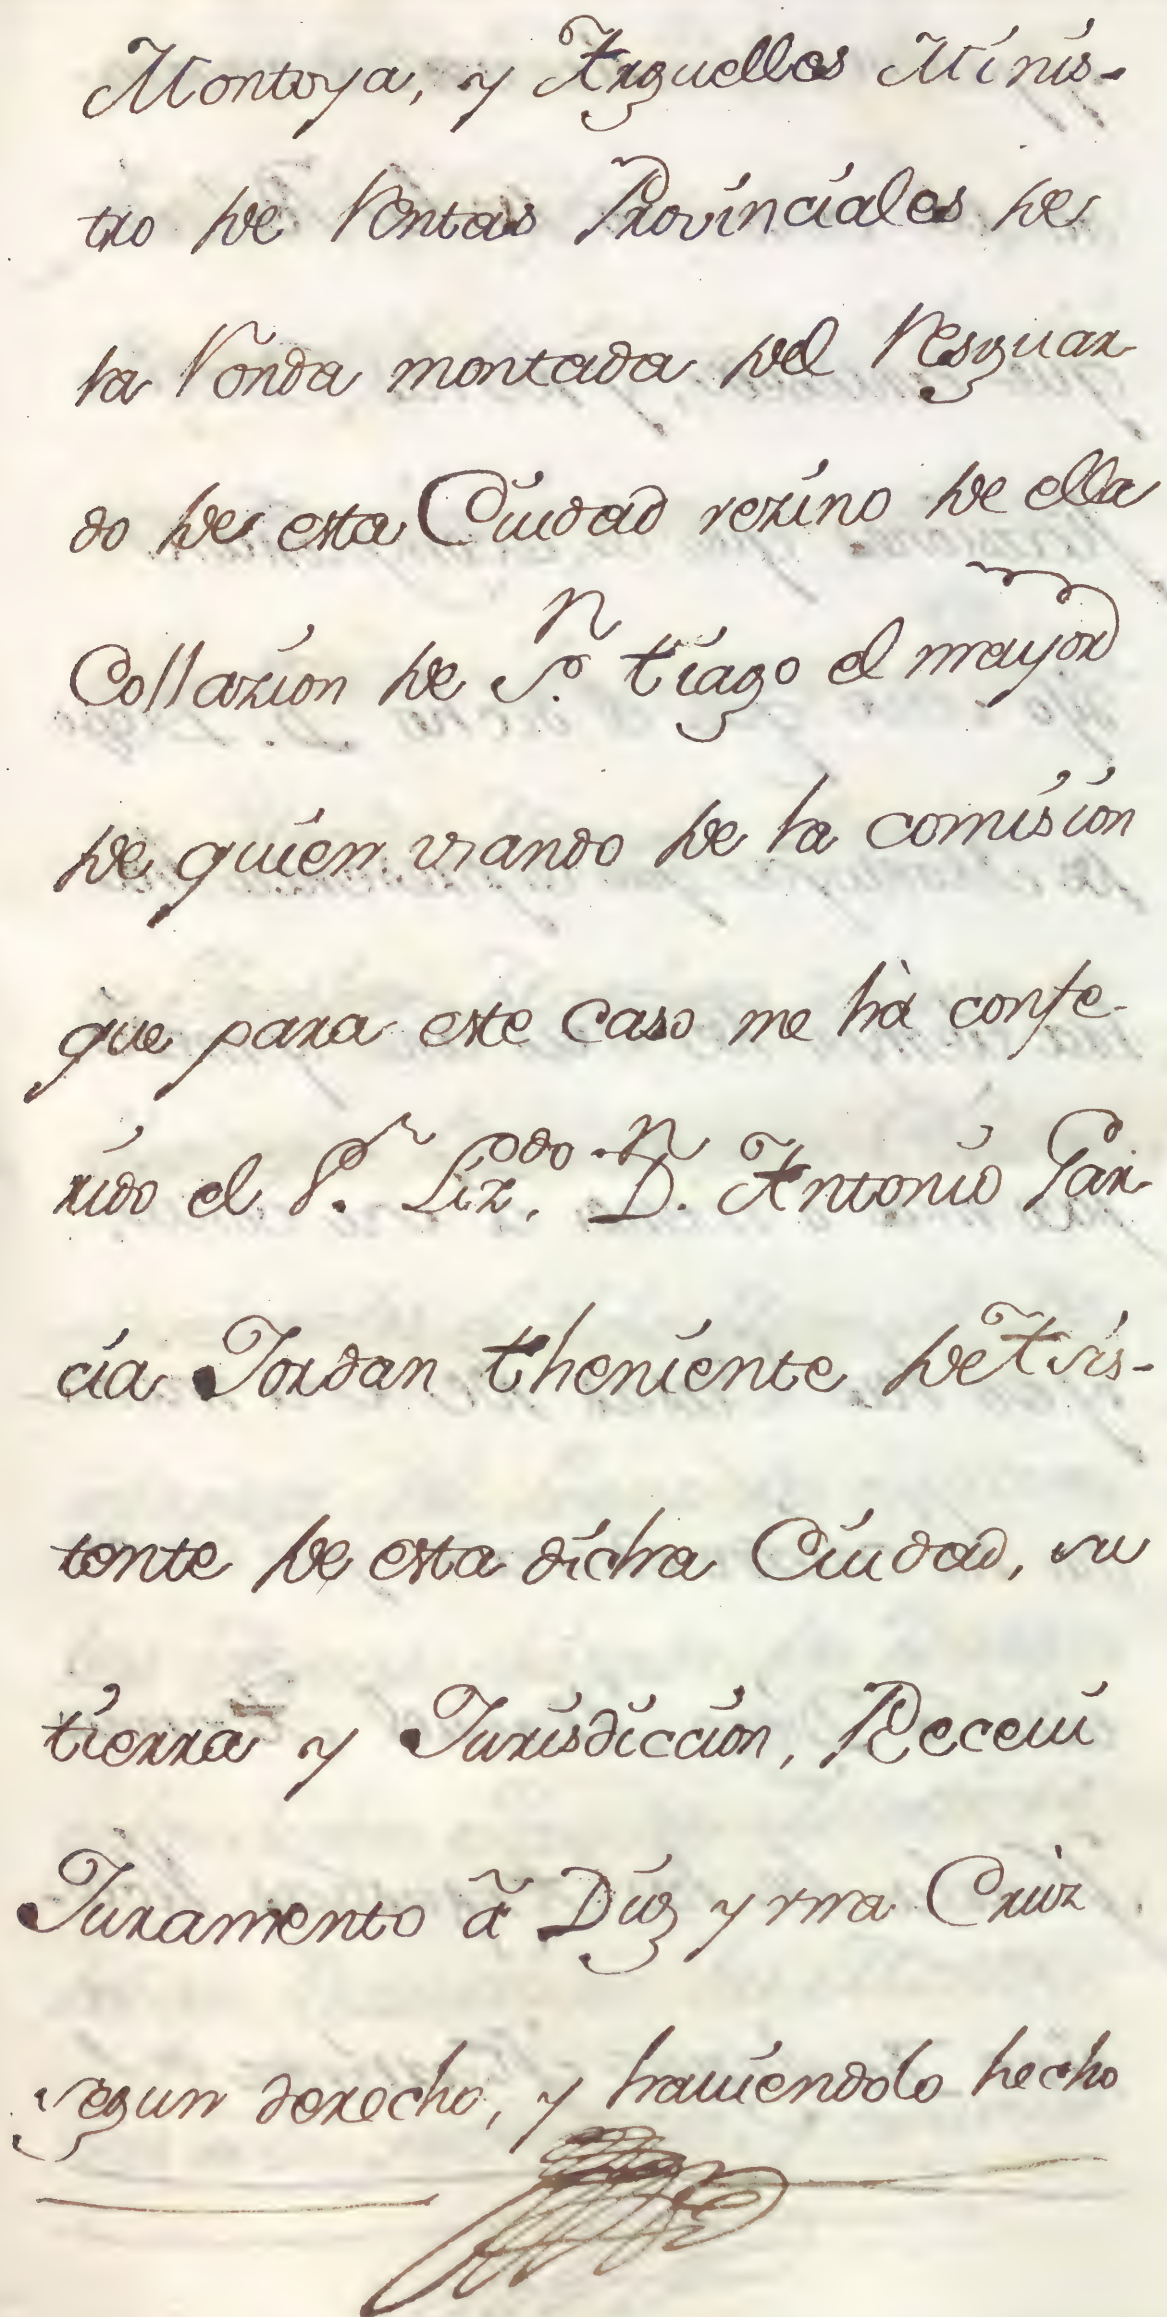 Montoya, y Arguelles Minis-
tro de Rentas Provinciales de
la Ronda montada del Resguar-
do de esta Ciudad vezino de ella
Collazion de S.n tiago el mayor
de quien usando de la comision
que para este caso me hà confe-
rido el S.r Liz.do D.n Antonio Gar-
cia Jordan theniente de Asis-
tente de esta dicha Ciudad, su
tierra y Jurisdiccion, Receui
Juramento à Dios y una Cruz
segun derecho, y hauiendolo hecho